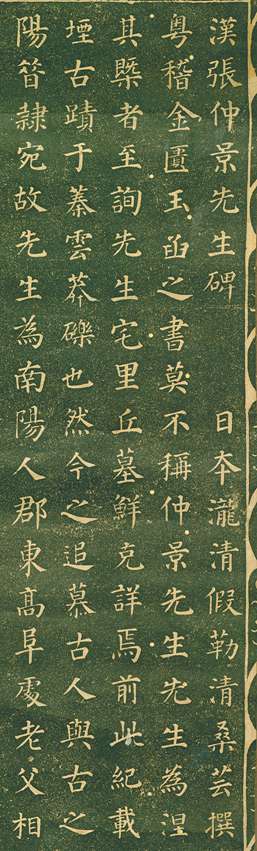 漢張仲景先生碑 日本瀧清假勒清桑芸撰
粤稽金匱玉函之書莫不稱仲景先生先生為涅
其槩者至詢先生宅里丘墓鮮克詳焉前此紀載
堙古蹟于蓁雲莽礫也然今之追慕古人與古之
陽笤隸宛故先生為南陽人郡東高阜處老父相